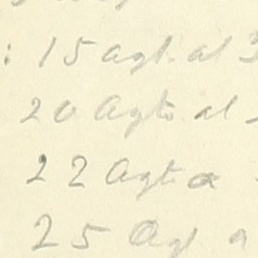 : 15 Agt. al 3
20 Agto al
22 Agto a
25 Agt a